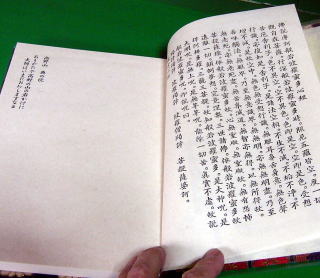 佛説摩訶般若波羅蜜多心經
觀自在菩薩。行深般若波羅蜜多時。照見五蘊皆空。度
一切苦厄。舍利子。色不異空。空不異色。色即是空。空即是色。受想
行識。亦復如是。舍利子。是諸法空相。不生不滅。不垢不淨。不
增不減。是故空中。無色。無受想行識。無眼耳鼻舌身意。無色聲
香味觸法。無眼界。乃至無意識界。無無明。亦無無明盡。乃至
無老死。亦無老死盡。無苦集滅道。無智亦無得。以無所得故。
菩提薩埵。依般若波羅蜜多故。心無罣礙。無罣礙故。無有恐怖。
遠離一切顛倒夢想。究竟涅槃。三世諸佛。依般若波羅蜜多故。
得阿耨多羅三藐三菩提。故知般若波羅蜜多。是大神呪。是
大明呪。是無上呪。是無等等呪。能除一切苦。真實不虛。故説
般若波羅蜜多呪。即説呪曰。
揭諦揭諦 波羅揭諦 波羅僧揭諦 菩提薩婆訶
高野山 奥の院
ありがたや高野の山の岩かげに
大師はいまだおわしますなる